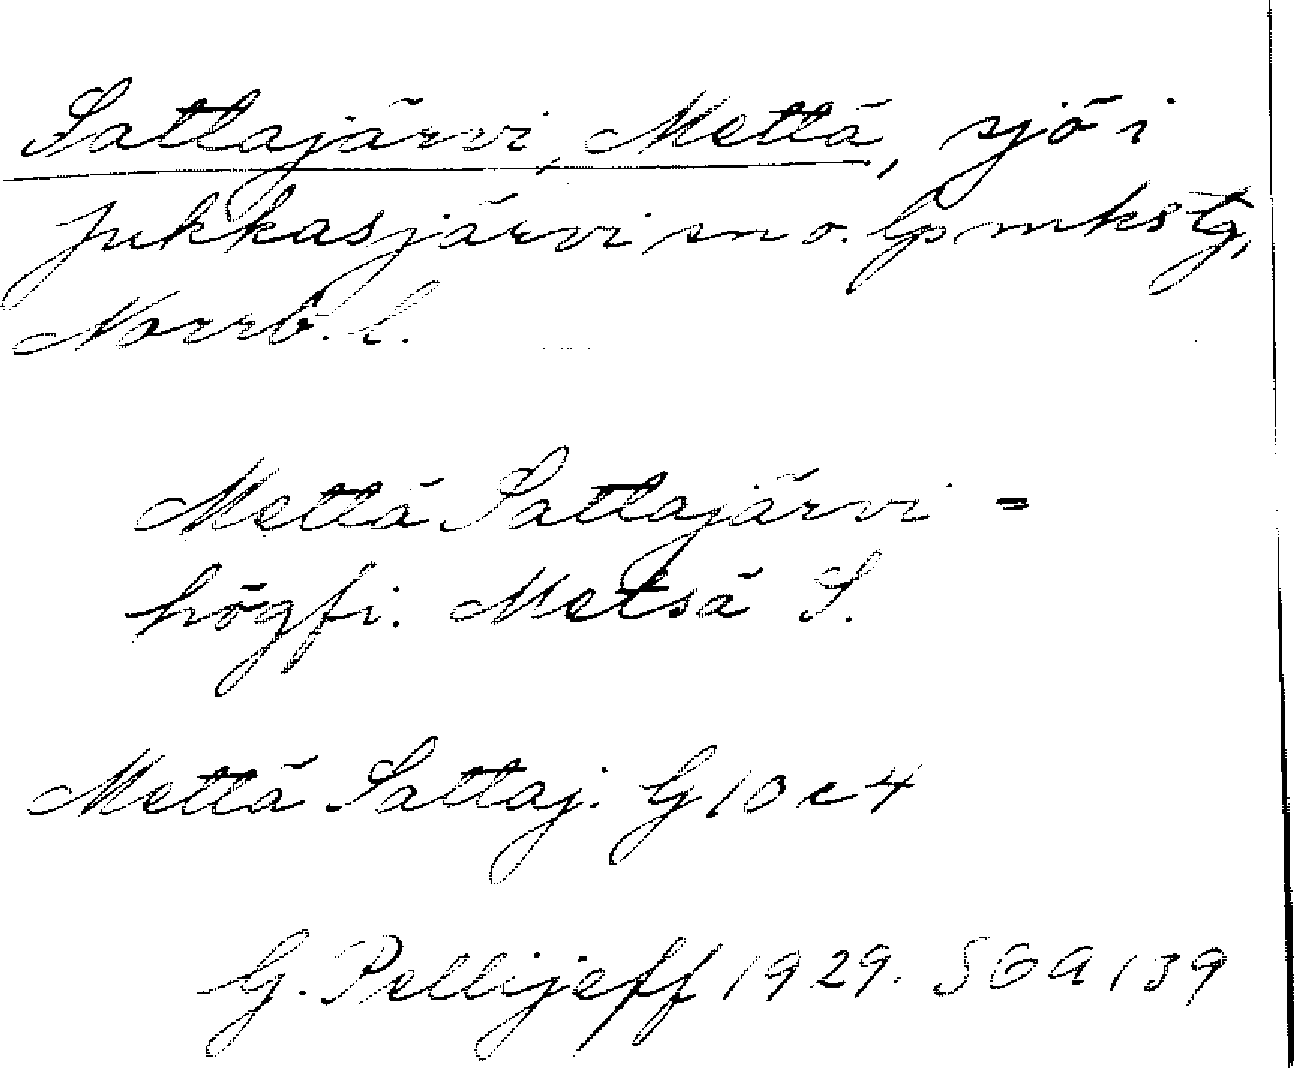 Sattajärvi, Mettä, sjö i
Jukkasjärvi sn o. lpmkstg,
Norrb. l.
Mettä Sattajärvi =
högfi. Metsä S.
Mettä Sattaj. G 10 c 4
G. Pellijeff 1929. SOA 139